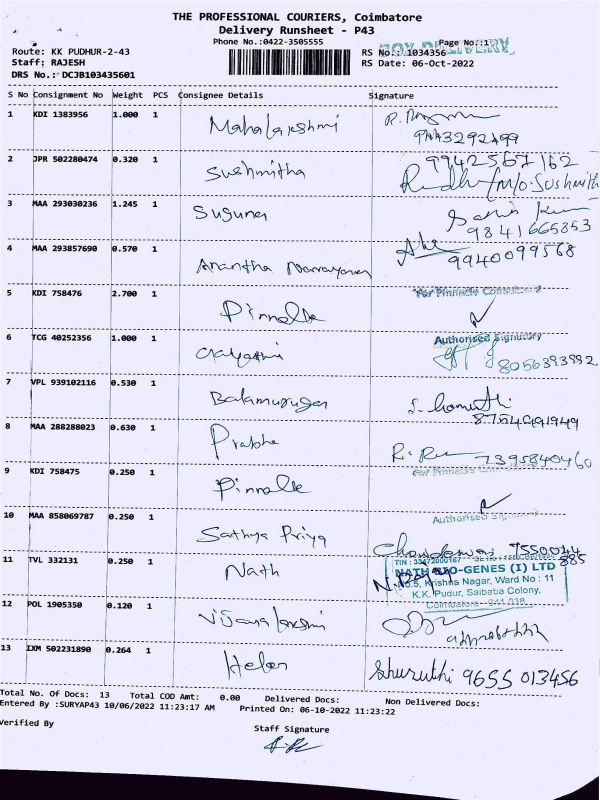 THE PROFESSIONAL COURIERS, Coimbatore
Delivery Runsheet - P43
Phone No.:0422-3505555
BOX DELIVERY
Page No.:1
Route: KK PUDHUR-2-43
RS No.: 1034356
Staff: RAJESH
RS Date: 06-Oct-2022
DRS No.: DCJB103435601
S No Consignment No Weight PCS Consignee Details Signature
1 KDI 1383956 1.000 1 Mahalakshmi
2 JPR 502280474 0.320 1 Sushmitha 9942567162
M/o. Sushmith
3 MAA 293030236 1.245 1 Suguna
9841665853
4 MAA 293857690 0.570 1 Anantha Narayanan 9940099568
5 KDI 758476 2.700 1 Pinnacle
For Pinnacle
Authorised Signatory
6 TCG 40252356 1.000 1 Gayathri 8056393992
7 VPL 939102116 0.530 1 Balamurugan
8 MAA 288288023 0.630 1 Prabha 7395840460
9 KDI 758475 0.250 1 Pinnacle
Authorised Signatory
10 MAA 858069787 0.250 1 Sathya Priya
7550044
885
11 TVL 332131 0.250 1 Nath
TIN : 33472000167
NATH BIO-GENES (I) LTD
No.5, Krishna Nagar, Ward No : 11
K.K. Pudur, Saibaba Colony,
Coimbatore - 641 038
12 POL 1905350 0.120 1 Vijayalakshmi
13 IXM 502231890 0.264 1 Helen Shuruthi 9655 013456
Total No. Of Docs: 13 Total COD Amt: 0.00 Delivered Docs: Non Delivered Docs:
Entered By :SURYAP43 10/06/2022 11:23:17 AM Printed On: 06-10-2022 11:23:22
Verified By
Staff Signature